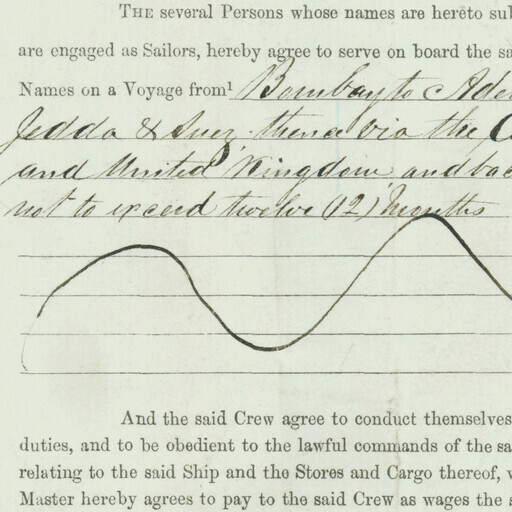 THE several Persons whose names are hereto sub
are engaged as Sailors, hereby agree to serve on board the sa
Names on a Voyage from¹ Bombay to Ade
Jedda & Suez thence via the C
and United Kingdom and bac
not to exceed twelve (12) Months
And the said Crew agree to conduct themselves
duties, and to be obedient to the lawful commands of the sa
relating to the said Ship and the Stores and Cargo thereof, w
Master hereby agrees to pay to the said Crew as wages the s